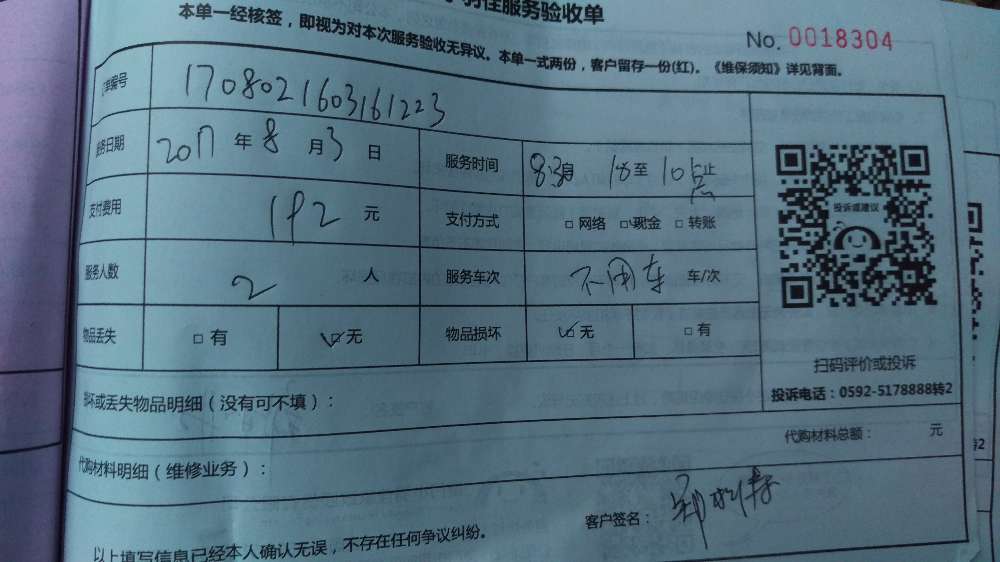 居住服务验收单
本单一经核签，即视为对本次服务验收无异议。本单一式两份，客户留存一份(红)。《维保须知》详见背面。
No. 0018304
订单编号 1708021603161223
服务日期 2017 年 8 月 3 日 服务时间 18至10点止
支付费用 192 元 支付方式 □网络 □现金 □转账
投诉或建议
服务人数 2 人 服务车次 不用车 车/次
物品丢失 □有 ☑无 物品损坏 ☑无 □有
扫码评价或投诉
投诉电话：0592-5178888转2
损坏或丢失物品明细（没有可不填）：
代购材料总额： 元
代购材料明细（维修业务）：
客户签名： 郑
以上填写信息已经本人确认无误，不存在任何争议纠纷。